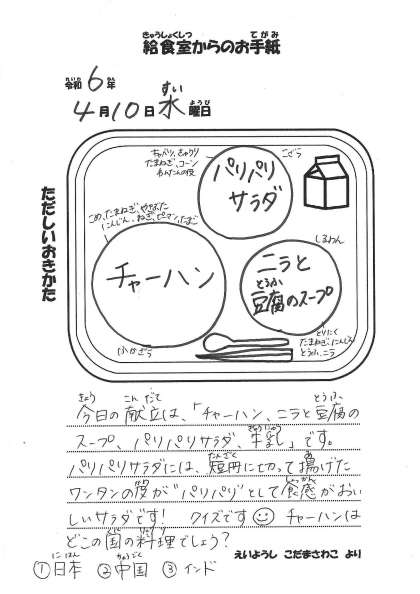 きゅうしょくしつ てがみ
給食室からのお手紙
れいわ ねん
令和6年
すい
4月10日水曜日
ようび
ただしいおきかた
こざら
パリパリ
サラダ
たまねぎ、コーン
わんたんの皮
チャーハン
ふかざら
しるわん
ニラと
とうふ
豆腐のスープ
とりにく
たまねぎ、にんじん
とうふ、ニラ
きょう こんだて とうふ
今日の献立は、「チャーハン、ニラと豆腐の
ぎゅうにゅう
スープ、パリパリサラダ、牛乳」です。
たんざく あ
パリパリサラダには、短冊に切って揚げた
かわ しょっかん
ワンタンの皮が"パリパリ"として食感がおい
しいサラダです! クイズです☺ チャーハンは
くに りょうり
どこの国の料理でしょう?
えいようし こだまさわこ より
にほん ちゅうごく
①日本 ②中国 ③インド